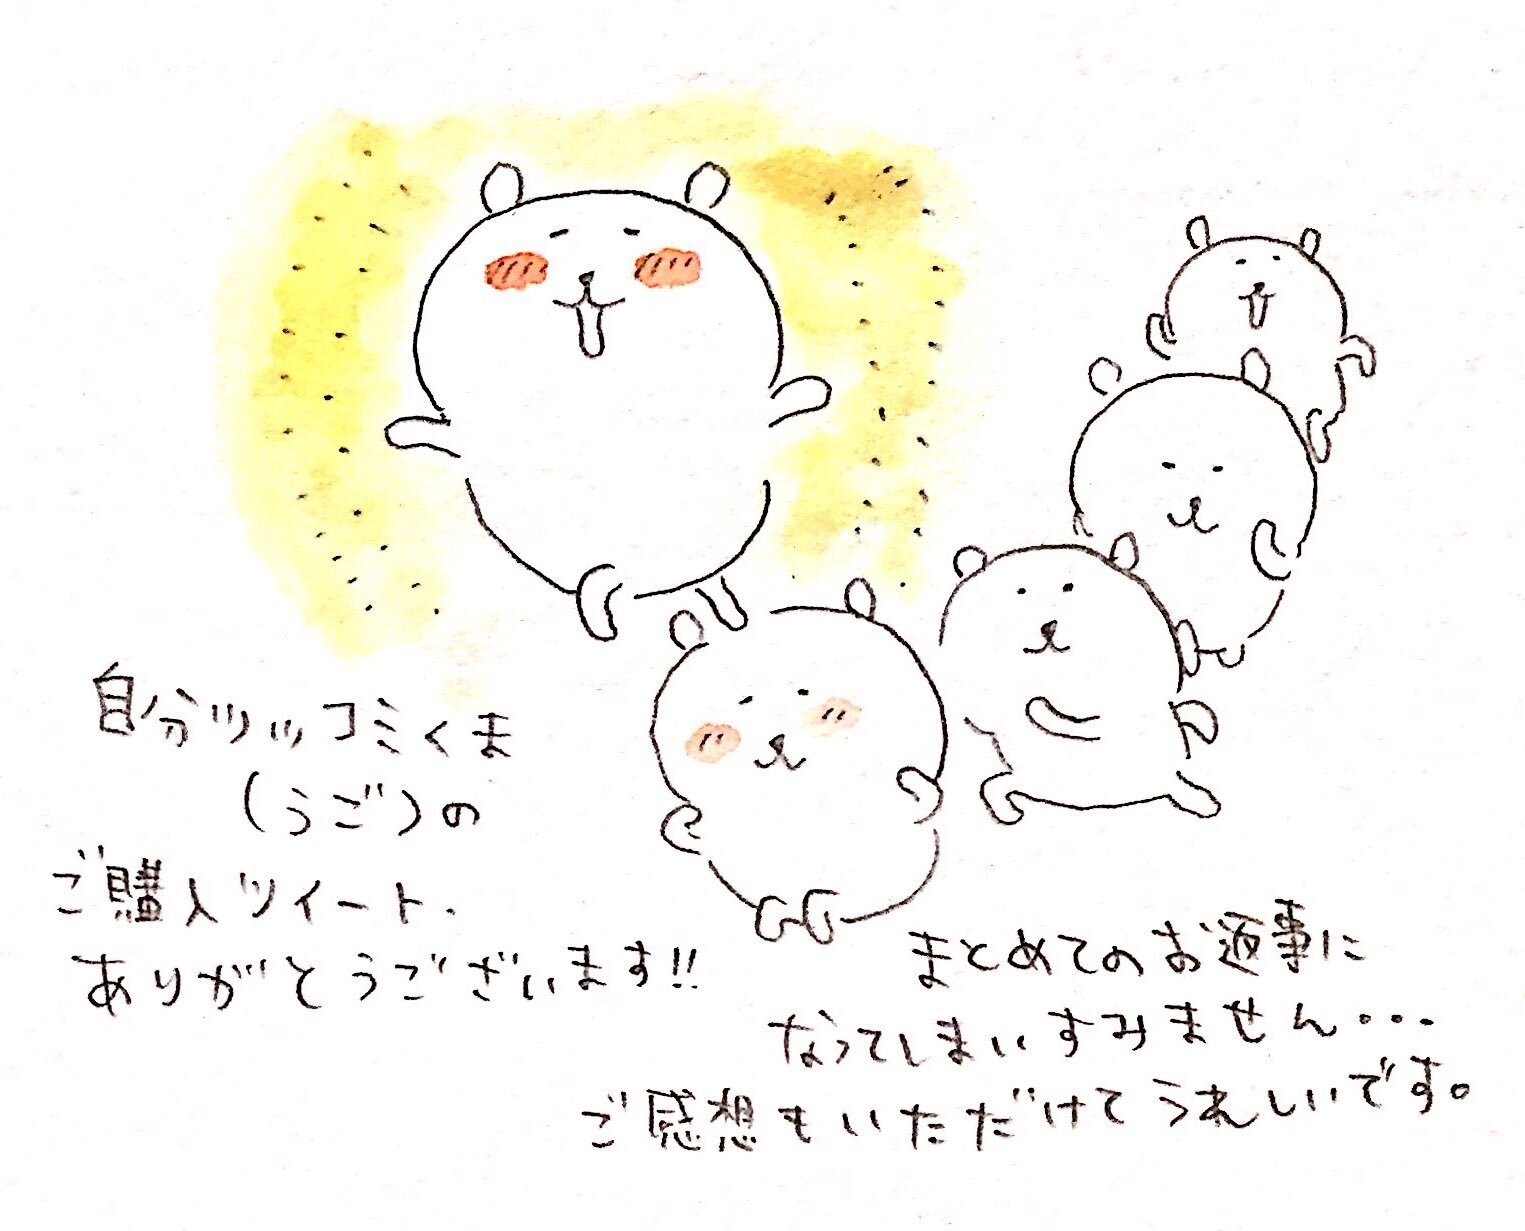 自分ツッコミくま
(うご)の
ご購入ツイート、
ありがとうございます!!
まとめてのお返事に
なってしまいすみません・・・
ご感想もいただけてうれしいです。